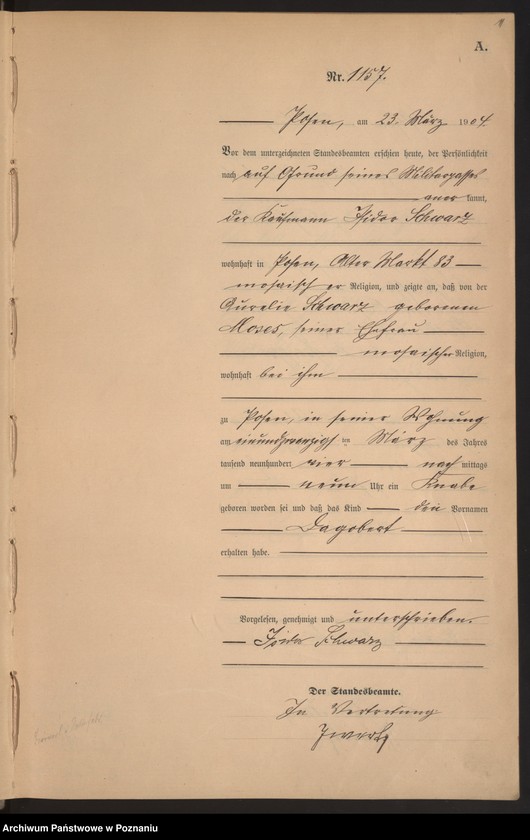 A.
Nr. 1157.
Posen, am 23. März 1904.
Vor dem unterzeichneten Standesbeamten erschien heute, der Persönlichkeit
nach auf Grund seines Militärpasses
aner kannt,
der Kaufmann Isidor Schwarz
wohnhaft in Posen, Alter Markt 83
mosaisch er Religion, und zeigte an, daß von der
Aurelie Schwarz geborenen
Moses, seiner Ehefrau
mosaischer Religion,
wohnhaft bei ihm
zu Posen, in seiner Wohnung
am einundzwanzigsten März des Jahres
tausend neunhundert vier nach mittags
um neun Uhr ein Knabe
geboren worden sei und daß das Kind den Vornamen
Dagobert
erhalten habe.
Vorgelesen, genehmigt und unterschrieben.
Isidor Schwarz
Der Standesbeamte.
In Vertretung
Archiwum Państwowe w Poznaniu